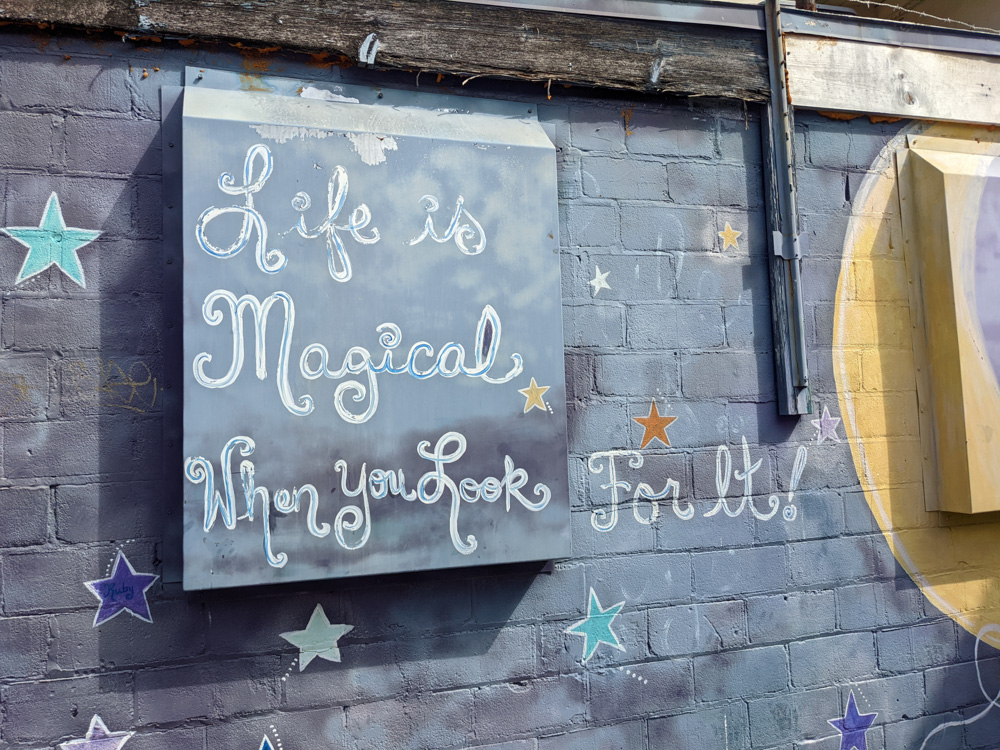 Life is
Magical
When you Look For It!
Ruby